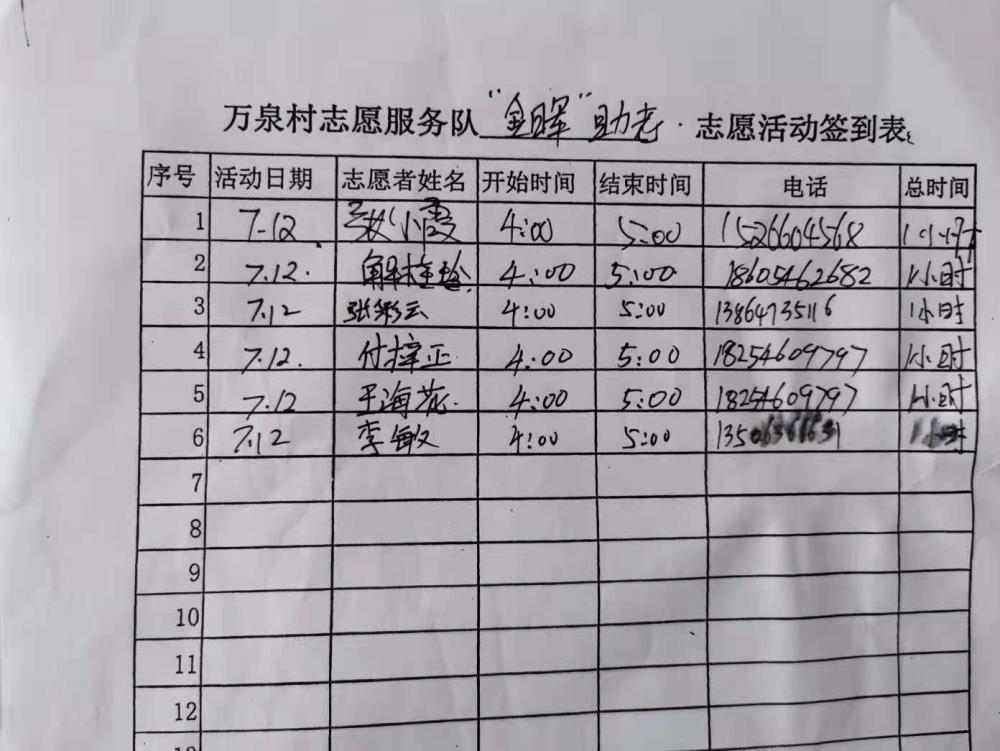 万泉村志愿服务队 "金晖"助老·志愿活动签到表
序号 活动日期 志愿者姓名 开始时间 结束时间 电话 总时间
1 7-12. 张小霞 4:00 5:00 15266604568 1小时
2 7.12. 解桂玲 4:00 5:00 18605462682 1小时
3 7.12 张彩云 4:00 5:00 13864735116 1小时
4 7.12. 付梓正 4:00 5:00 18254609797 1小时
5 7.12 王海花. 4:00 5:00 18254609797 1小时
6 7.12 李敏 4:00 5:00 1小时
7
8
9
10
11
12
13